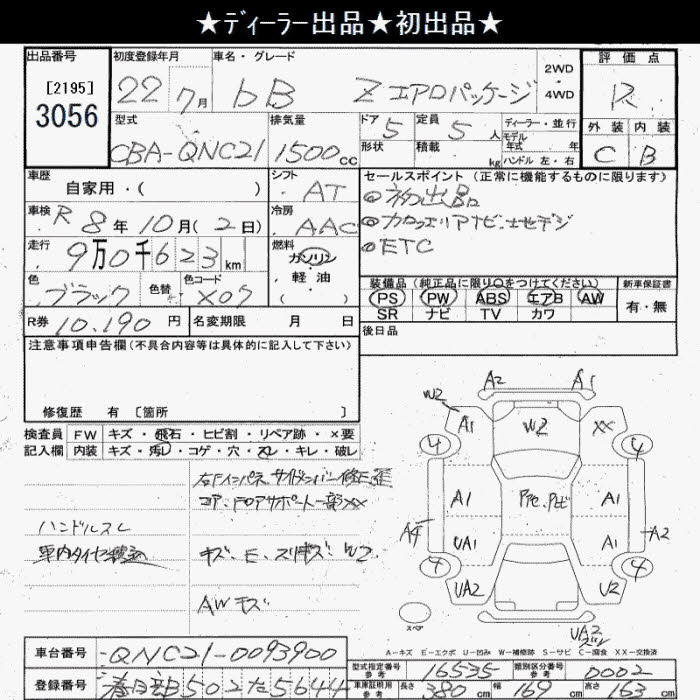 ★ディーラー出品★初出品★
出品番号
[2195]
3056
初度登録年月
22年 7月
車名・グレード
bB Z エアロパッケージ
2WD
・
4WD
評価点
R
外装 内装
C B
型式
CBA-QNC21
排気量
1500cc
ドア 5
形状
定員 5人
積載 kg
ディーラー・並行
モデル年式 年
ハンドル 左・右
車歴
自家用・( )
シフト
AT
車検 R8年10月(2日)
冷房
AAC
走行 9万0千623km
燃料
ガソリン
・
軽油
( )
色
ブラック
色替
色コード
X07
セールスポイント(正常に機能するものに限ります)
◎初出品
◎カロッツェリアナビ・地デジ
◎ETC
装備品(純正品に限り○をつけてください)
PS PW ABS エアB AW
SR ナビ TV カワ
新車保証書
有・無
R券 10.190円
名変期限 月 日
後日品
注意事項申告欄(不具合内容等は具体的に記入して下さい)
修復歴 有 [箇所 ]
検査員
記入欄
FW キズ・飛石・ヒビ割・リペア跡・×要
内装 キズ・汚レ・コゲ・穴・スレ・キレ・破レ
右Fインパネ、サイドメンバー修正歪
コア、FロアサポートXX
ハンドルスレ
車内タイヤ積込
キズ・E・スリキズ・W2
AWキズ
A2 A1
W2
A1 W2 XX
4 4
A1 A1
A2
UA1 A1
4 4
UA2 U2
スペア
UA2
A-キズ E-エクボ U-凹み W-補修跡 S-サビ C-腐食 XX-交換済
車台番号 QNC21-0093900
登録番号 春日部502た5644
型式指定番号 参考 16535
類別区分番号 参考 0002
車庫証明用 参考 長さ 380cm 幅 169cm 高さ 163cm